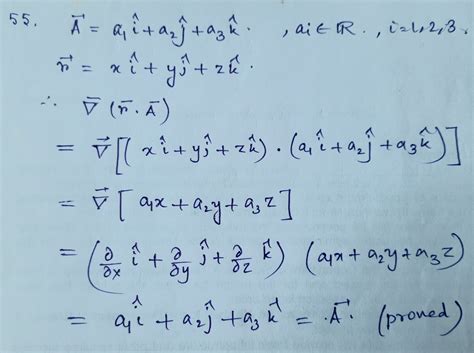 55. A⃗ = a₁î + a₂ĵ + a₃k̂ . , ai ∈ ℝ. , i=1,2,3.
r⃗ = xî + yĵ + zk̂ .
∴ ∇⃗ (r⃗ . A⃗)
= ∇⃗ [( xî + yĵ + zk̂) · (a₁î + a₂ĵ + a₃k̂)]
= ∇⃗ [ a₁x + a₂y + a₃z ]
= (∂/∂x î + ∂/∂y ĵ + ∂/∂z k̂) (a₁x + a₂y + a₃z)
= a₁î + a₂ĵ + a₃k̂ = .A⃗. (proved)